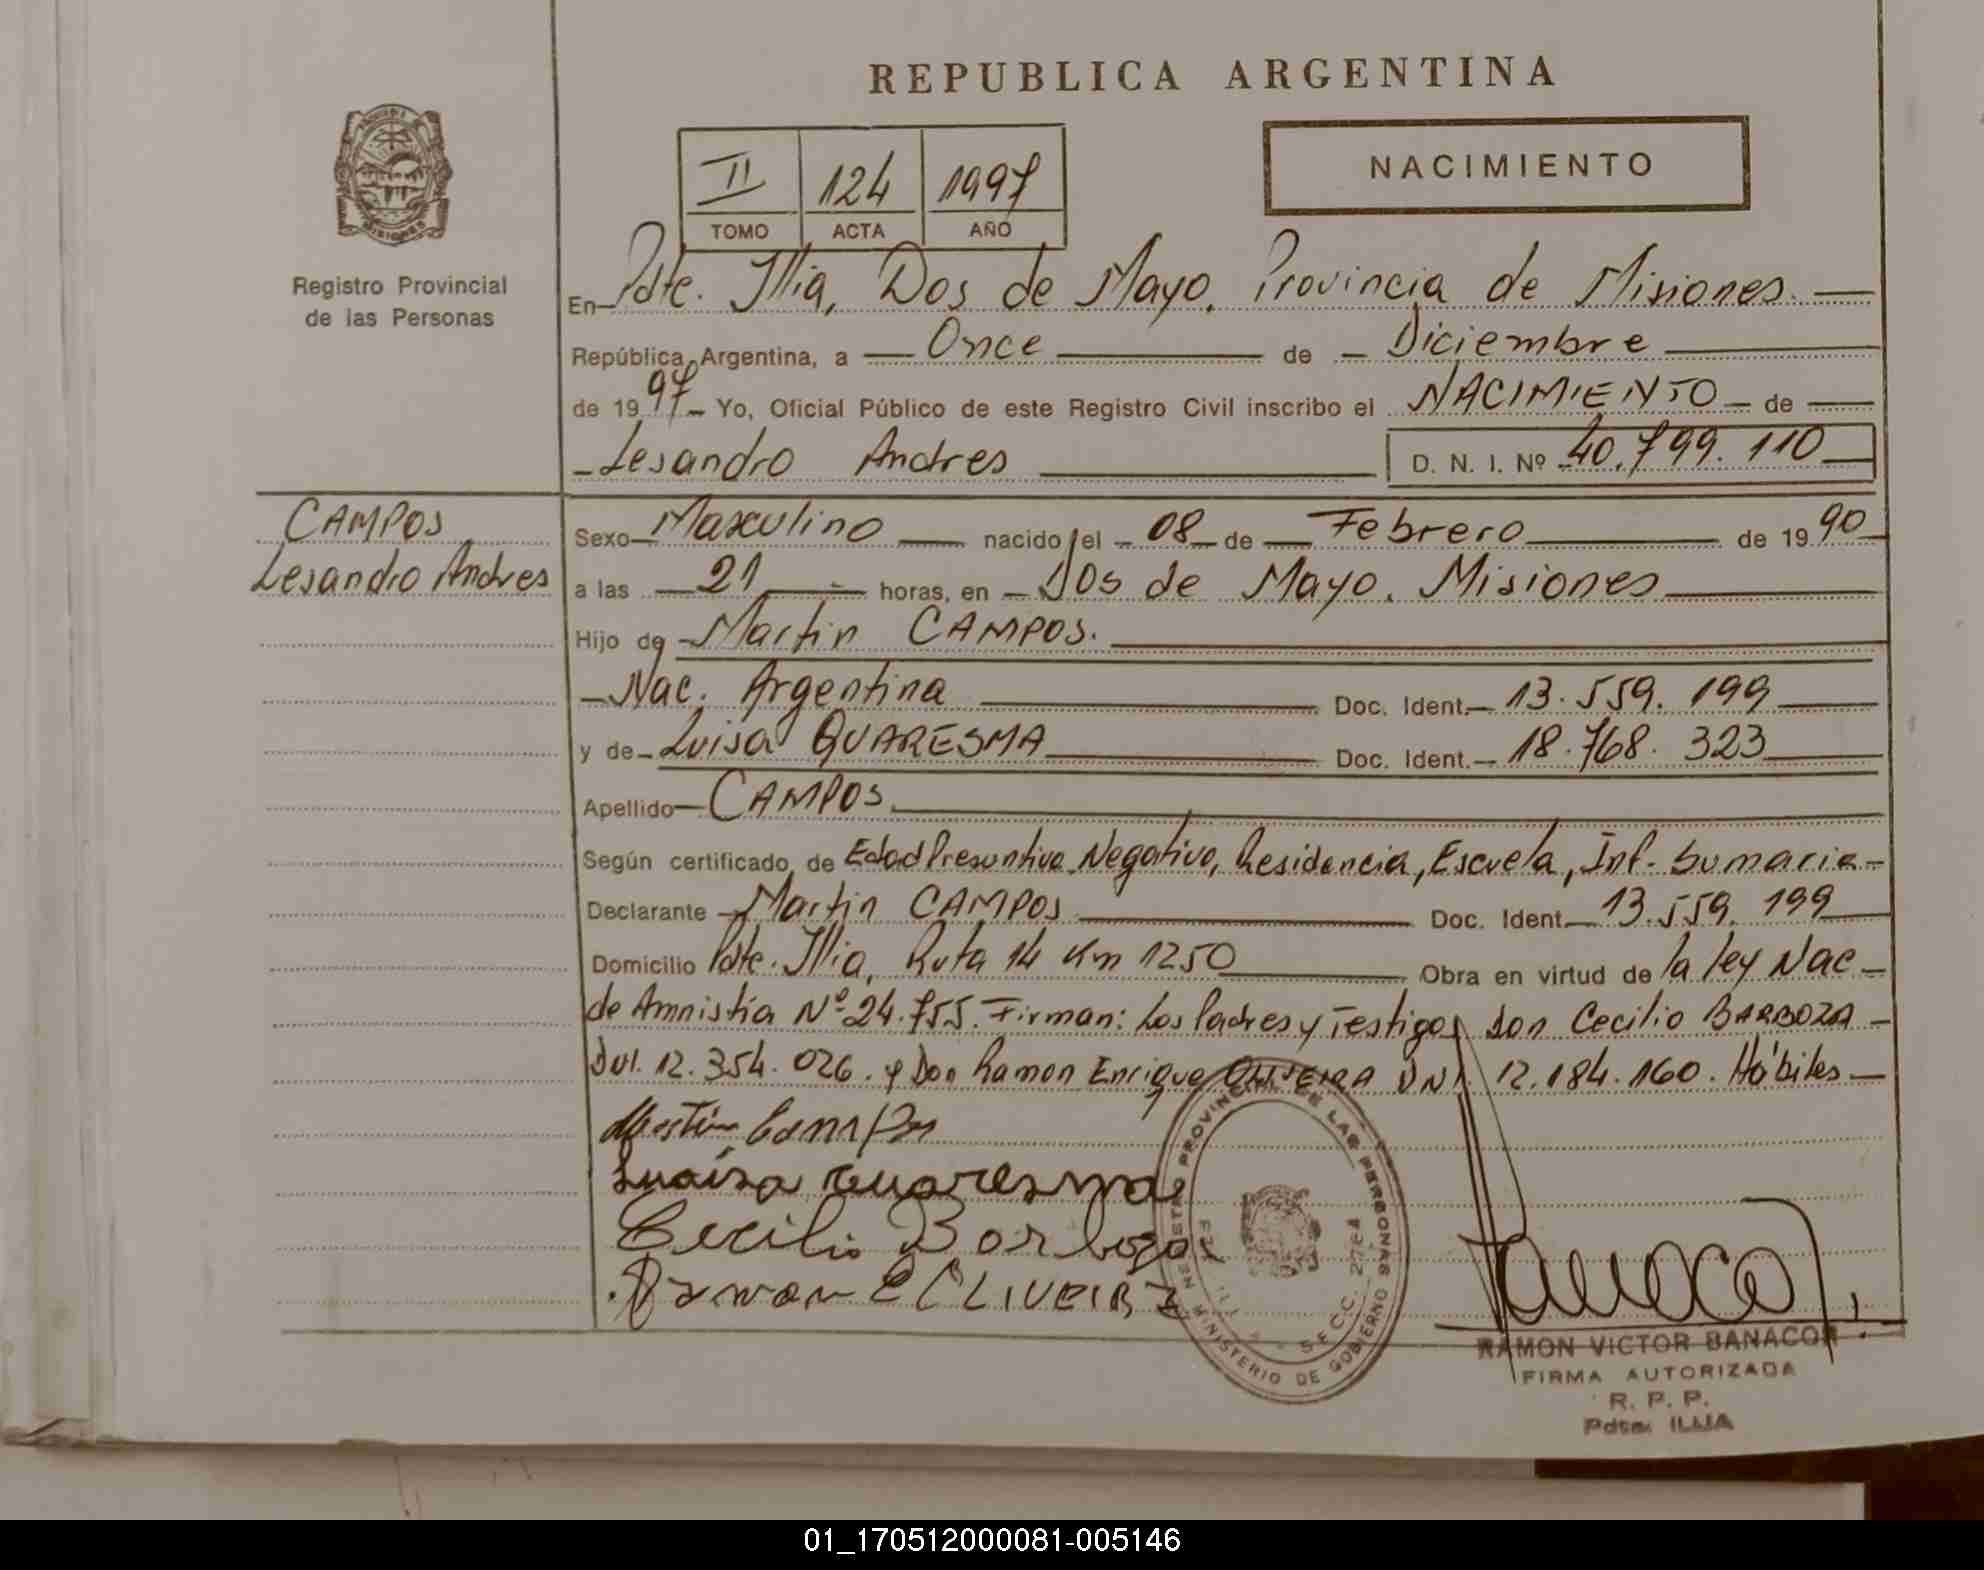 REPUBLICA ARGENTINA
NACIMIENTO
II 124 1997
TOMO ACTA AÑO
Registro Provincial
de las Personas
En Pdte. Illia, Dos de Mayo, Provincia de Misiones.
República Argentina, a Once de Diciembre
de 1997 Yo, Oficial Público de este Registro Civil inscribo el NACIMIENTO de
Lesandro Andres D. N. I. Nº 40.799.110
CAMPOS
Lesandro Andres
Sexo Masculino nacido el 08 de Febrero de 1990
a las 21 horas, en Dos de Mayo. Misiones
Hijo de Martin CAMPOS.
Nac. Argentina Doc. Ident. 13.559.199
y de Luisa QUARESMA Doc. Ident. 18.768.323
Apellido CAMPOS
Según certificado de Edad Presuntiva, Negativo, Residencia, Escuela, Inf. Sumaria
Declarante Martin CAMPOS Doc. Ident. 13.559.199
Domicilio Pdte. Illia, Ruta 14 Km 1250 Obra en virtud de la ley Nac
de Amnistía Nº 24.755. Firman: Los Padres y Testigos Don Cecilio BARBOZA
DNI. 12.354.026. y Don Ramon Enrique OLIVEIRA DNI. 12.184.160. Hábiles
Martin Campos
Luaisa Cuaresma
Cecilio Borboza
Ramon E OLIVEIRA
PROVINCIAL DE LAS PERSONAS
MINISTERIO DE GOBIERNO
SECC. 2764
RAMON VICTOR BANACOR
FIRMA AUTORIZADA
R. P. P.
Pdte. ILLIA
01_170512000081-005146